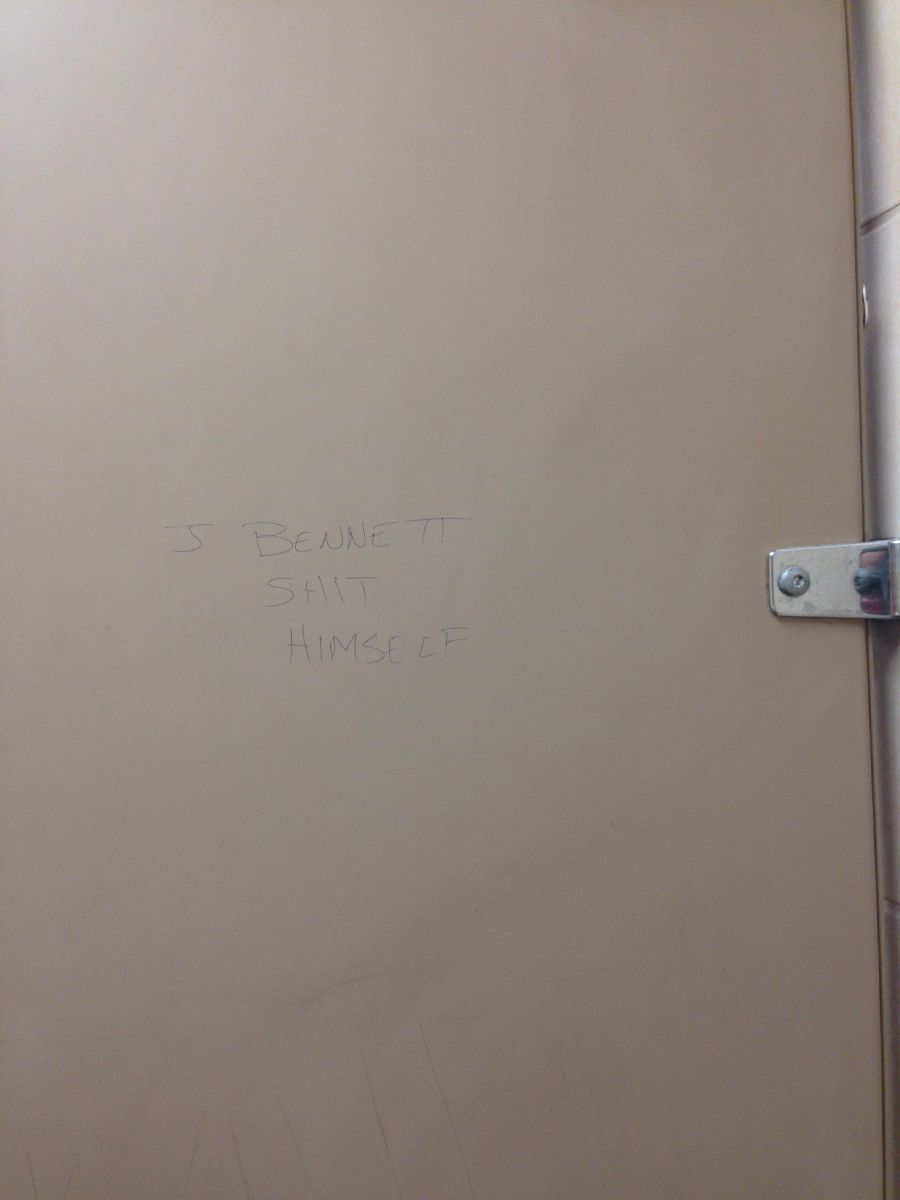 J BENNETT
SHIT
HIMSELF